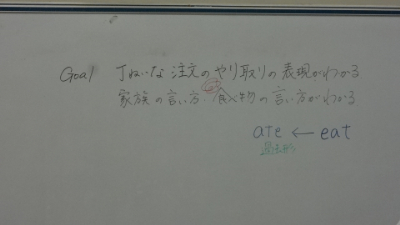 Goal 丁ねいな注文のやり取りの表現がわかる
家族の言い方・食べ物の言い方がわかる
ate ← eat
過去形